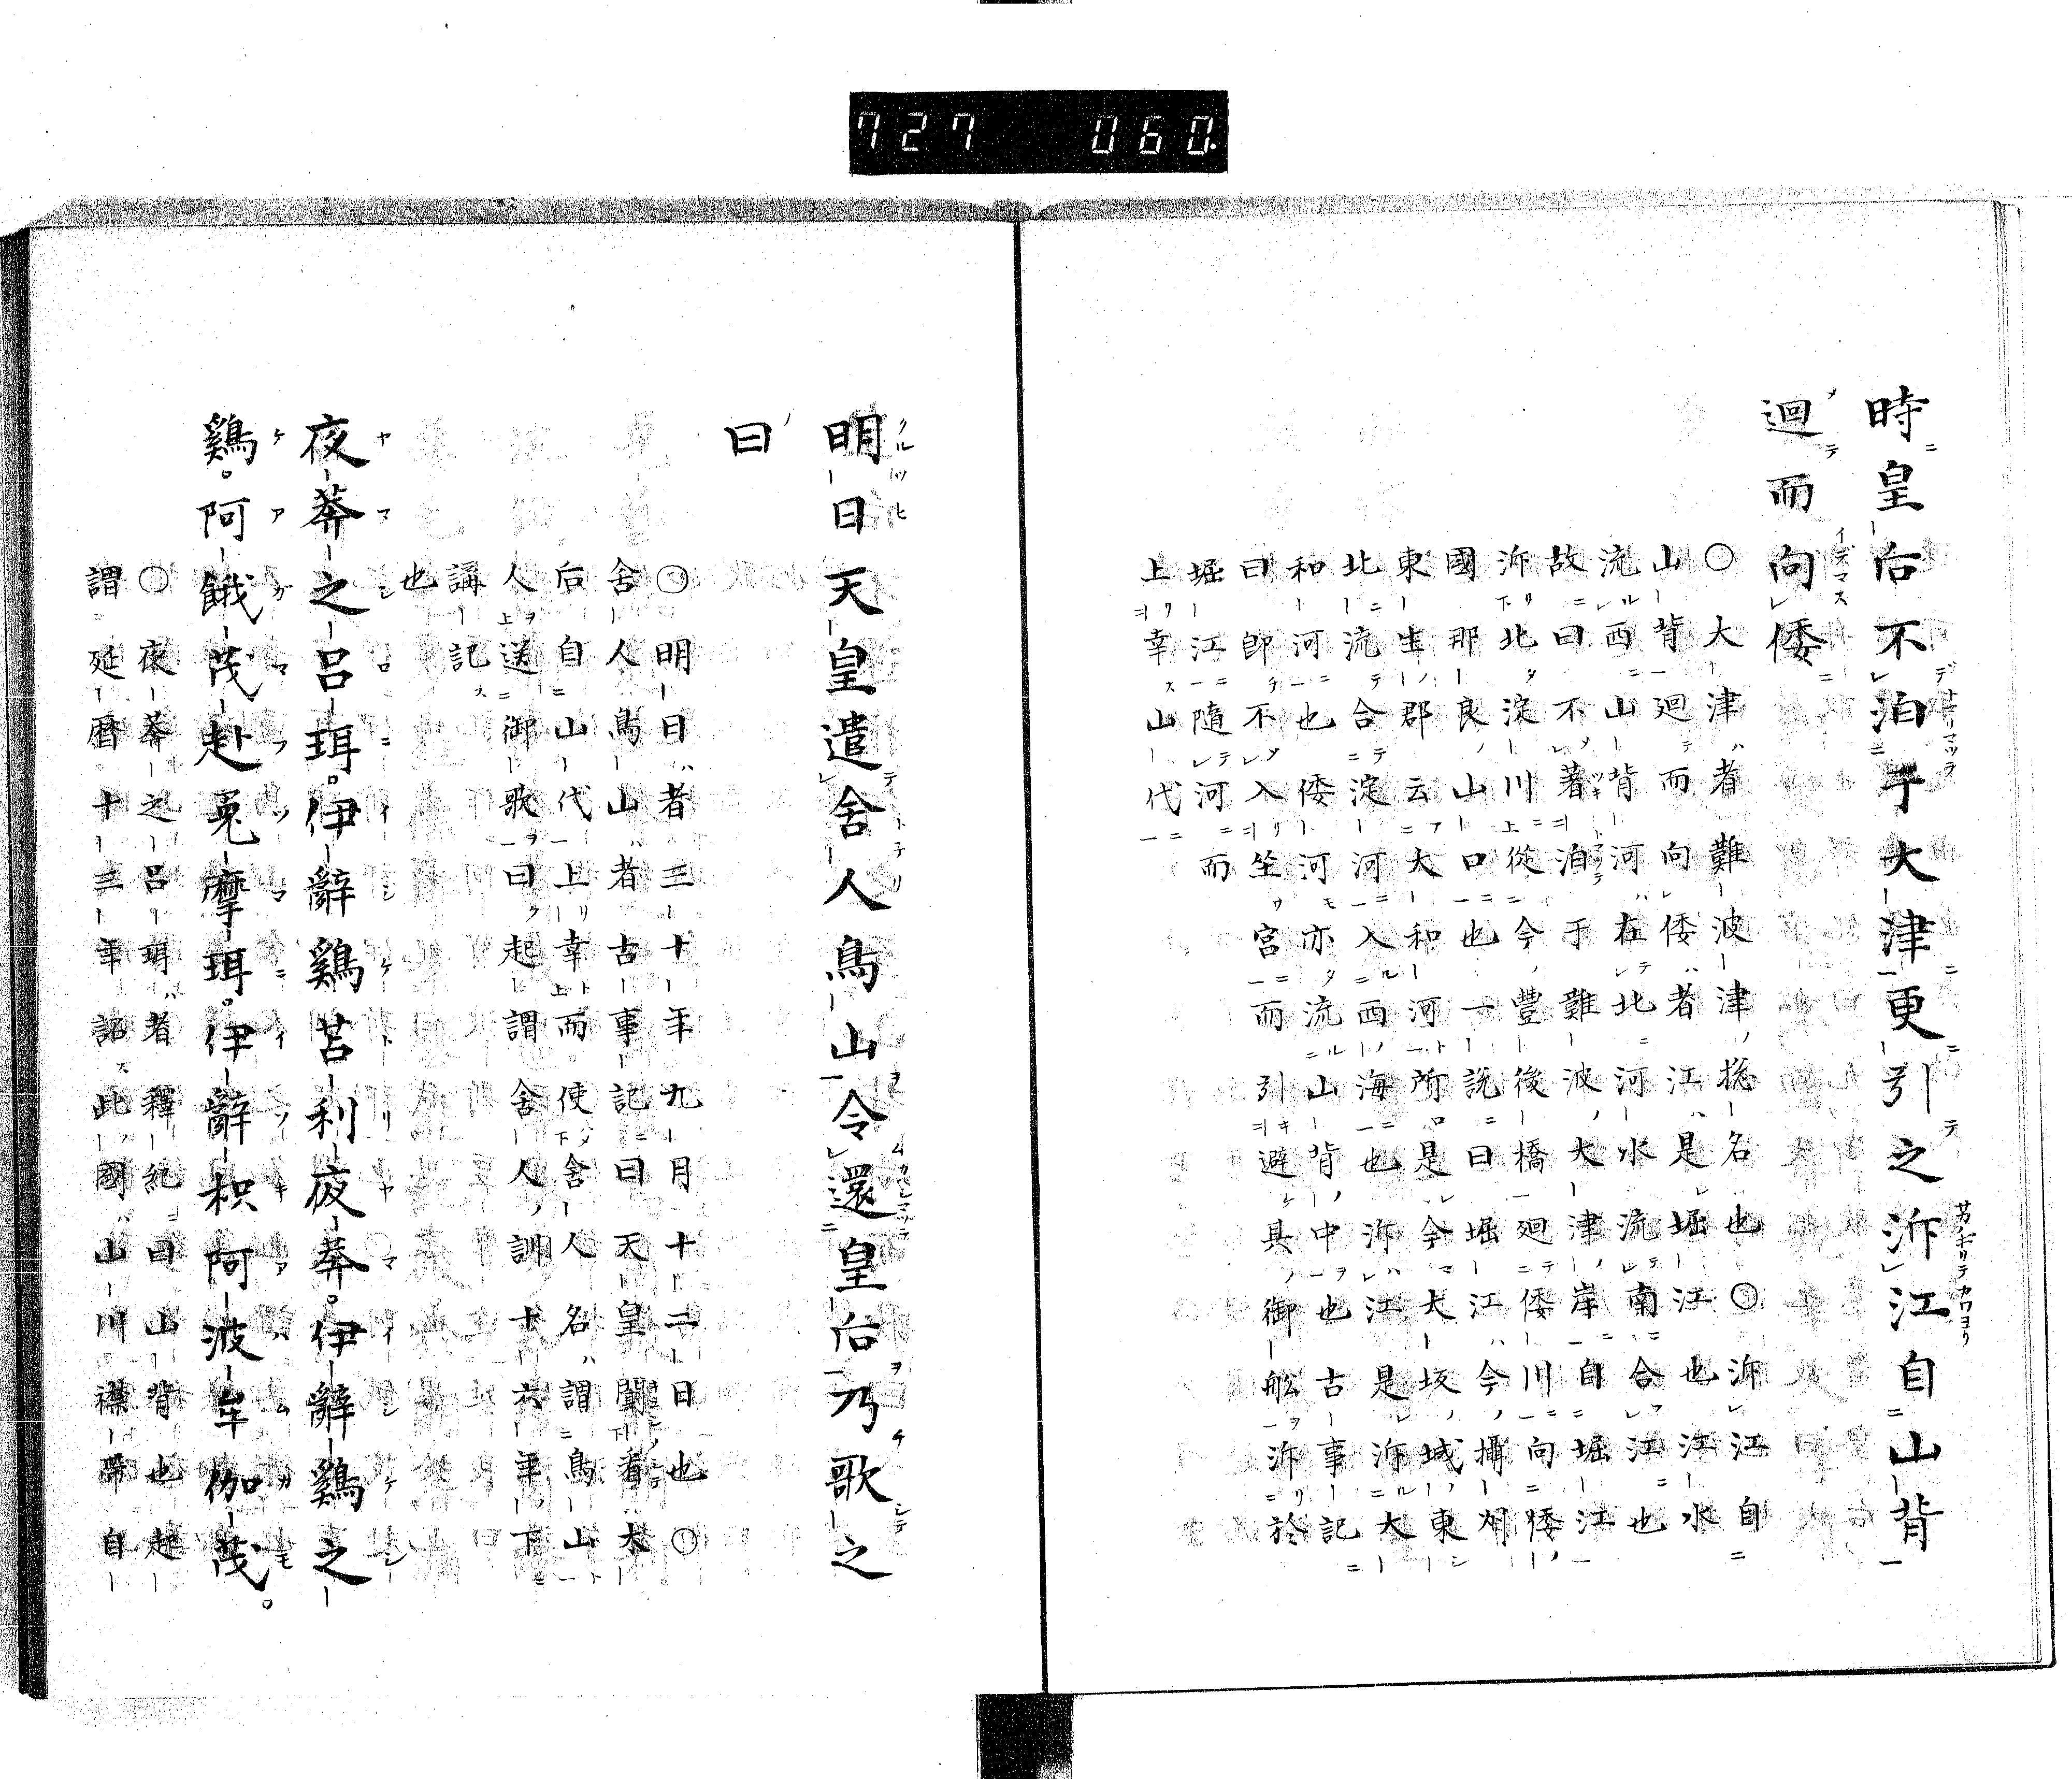 727 060
時皇后不泊于大津更引之泝江自山背
迴而向倭
〇大津者難波津ノ捴名也〇泝江自
山背迴而向倭者江是堀江也江水
流西山背河在北河水流南合江也
故曰不著泊于難波大津岸自堀江
泝北淀川從今豐後橋迴倭川向倭
國那良山口也一說曰堀江今攝刕
東生郡云大和河所是今大坂城東
北流合淀河入西海也泝江是泝大
和河也倭河亦流山背中也古事記
曰卽不入坐宮而引避其御舩泝於
堀江隨河而
上幸山代
明日天皇遣舍人鳥山令還皇后乃歌之
曰
〇明日者三十年九月十二日也〇
舍人鳥山者古事記曰天皇聞看大
后自山代上幸而使舍人名謂鳥山
人送御歌曰起謂舍人訓十六年下
講記
也
夜莽之呂珥伊辭鷄苫利夜莽伊辭鷄之
鷄阿餓茂赴菟摩珥伊辭枳阿波牟伽茂
〇夜莽之呂珥者釋紀曰山背也起
謂延曆十三年詔此國山川襟帶自